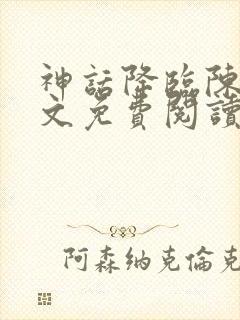 神話降臨陳
文免費閱讀
阿森納克倫克